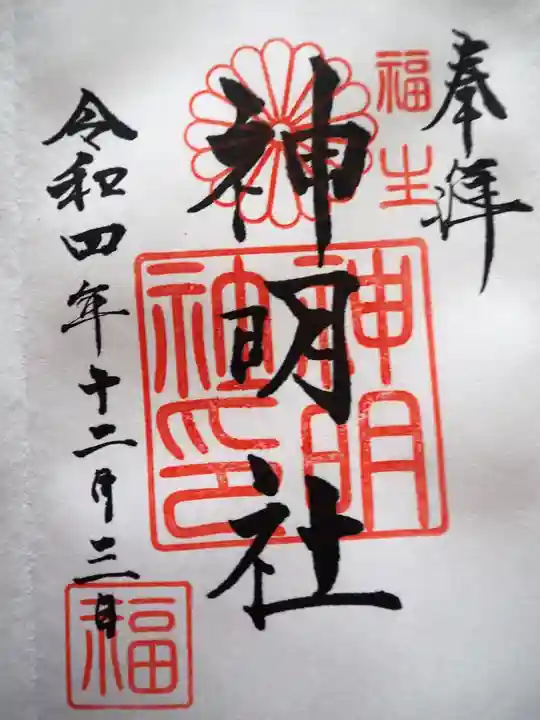 奉拝
福生
神明社
神明社印
令和四年十二月三日
福